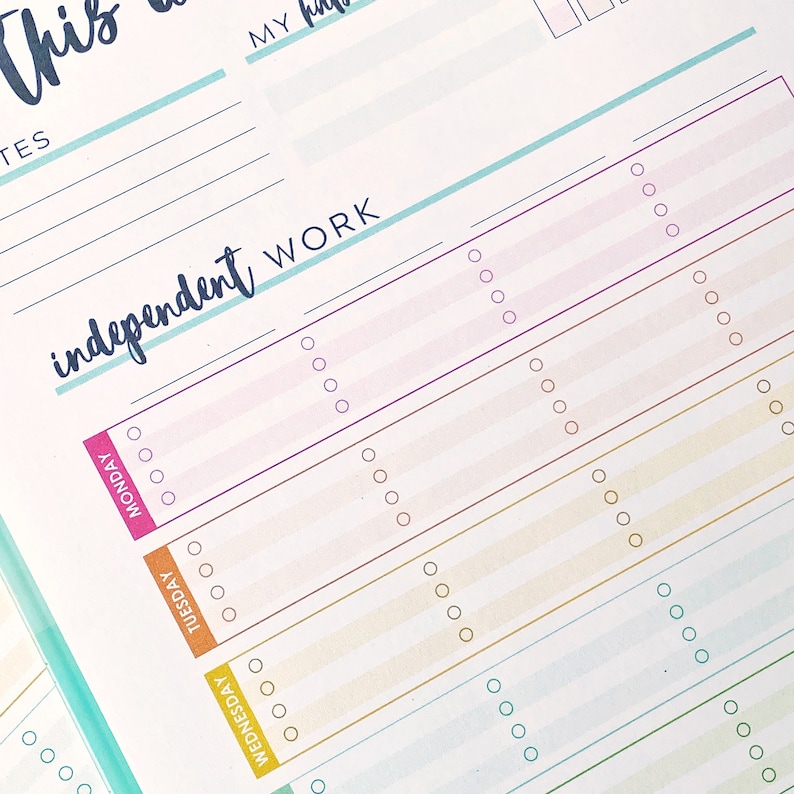 This
MY
independent WORK
MONDAY
TUESDAY
WEDNESDAY